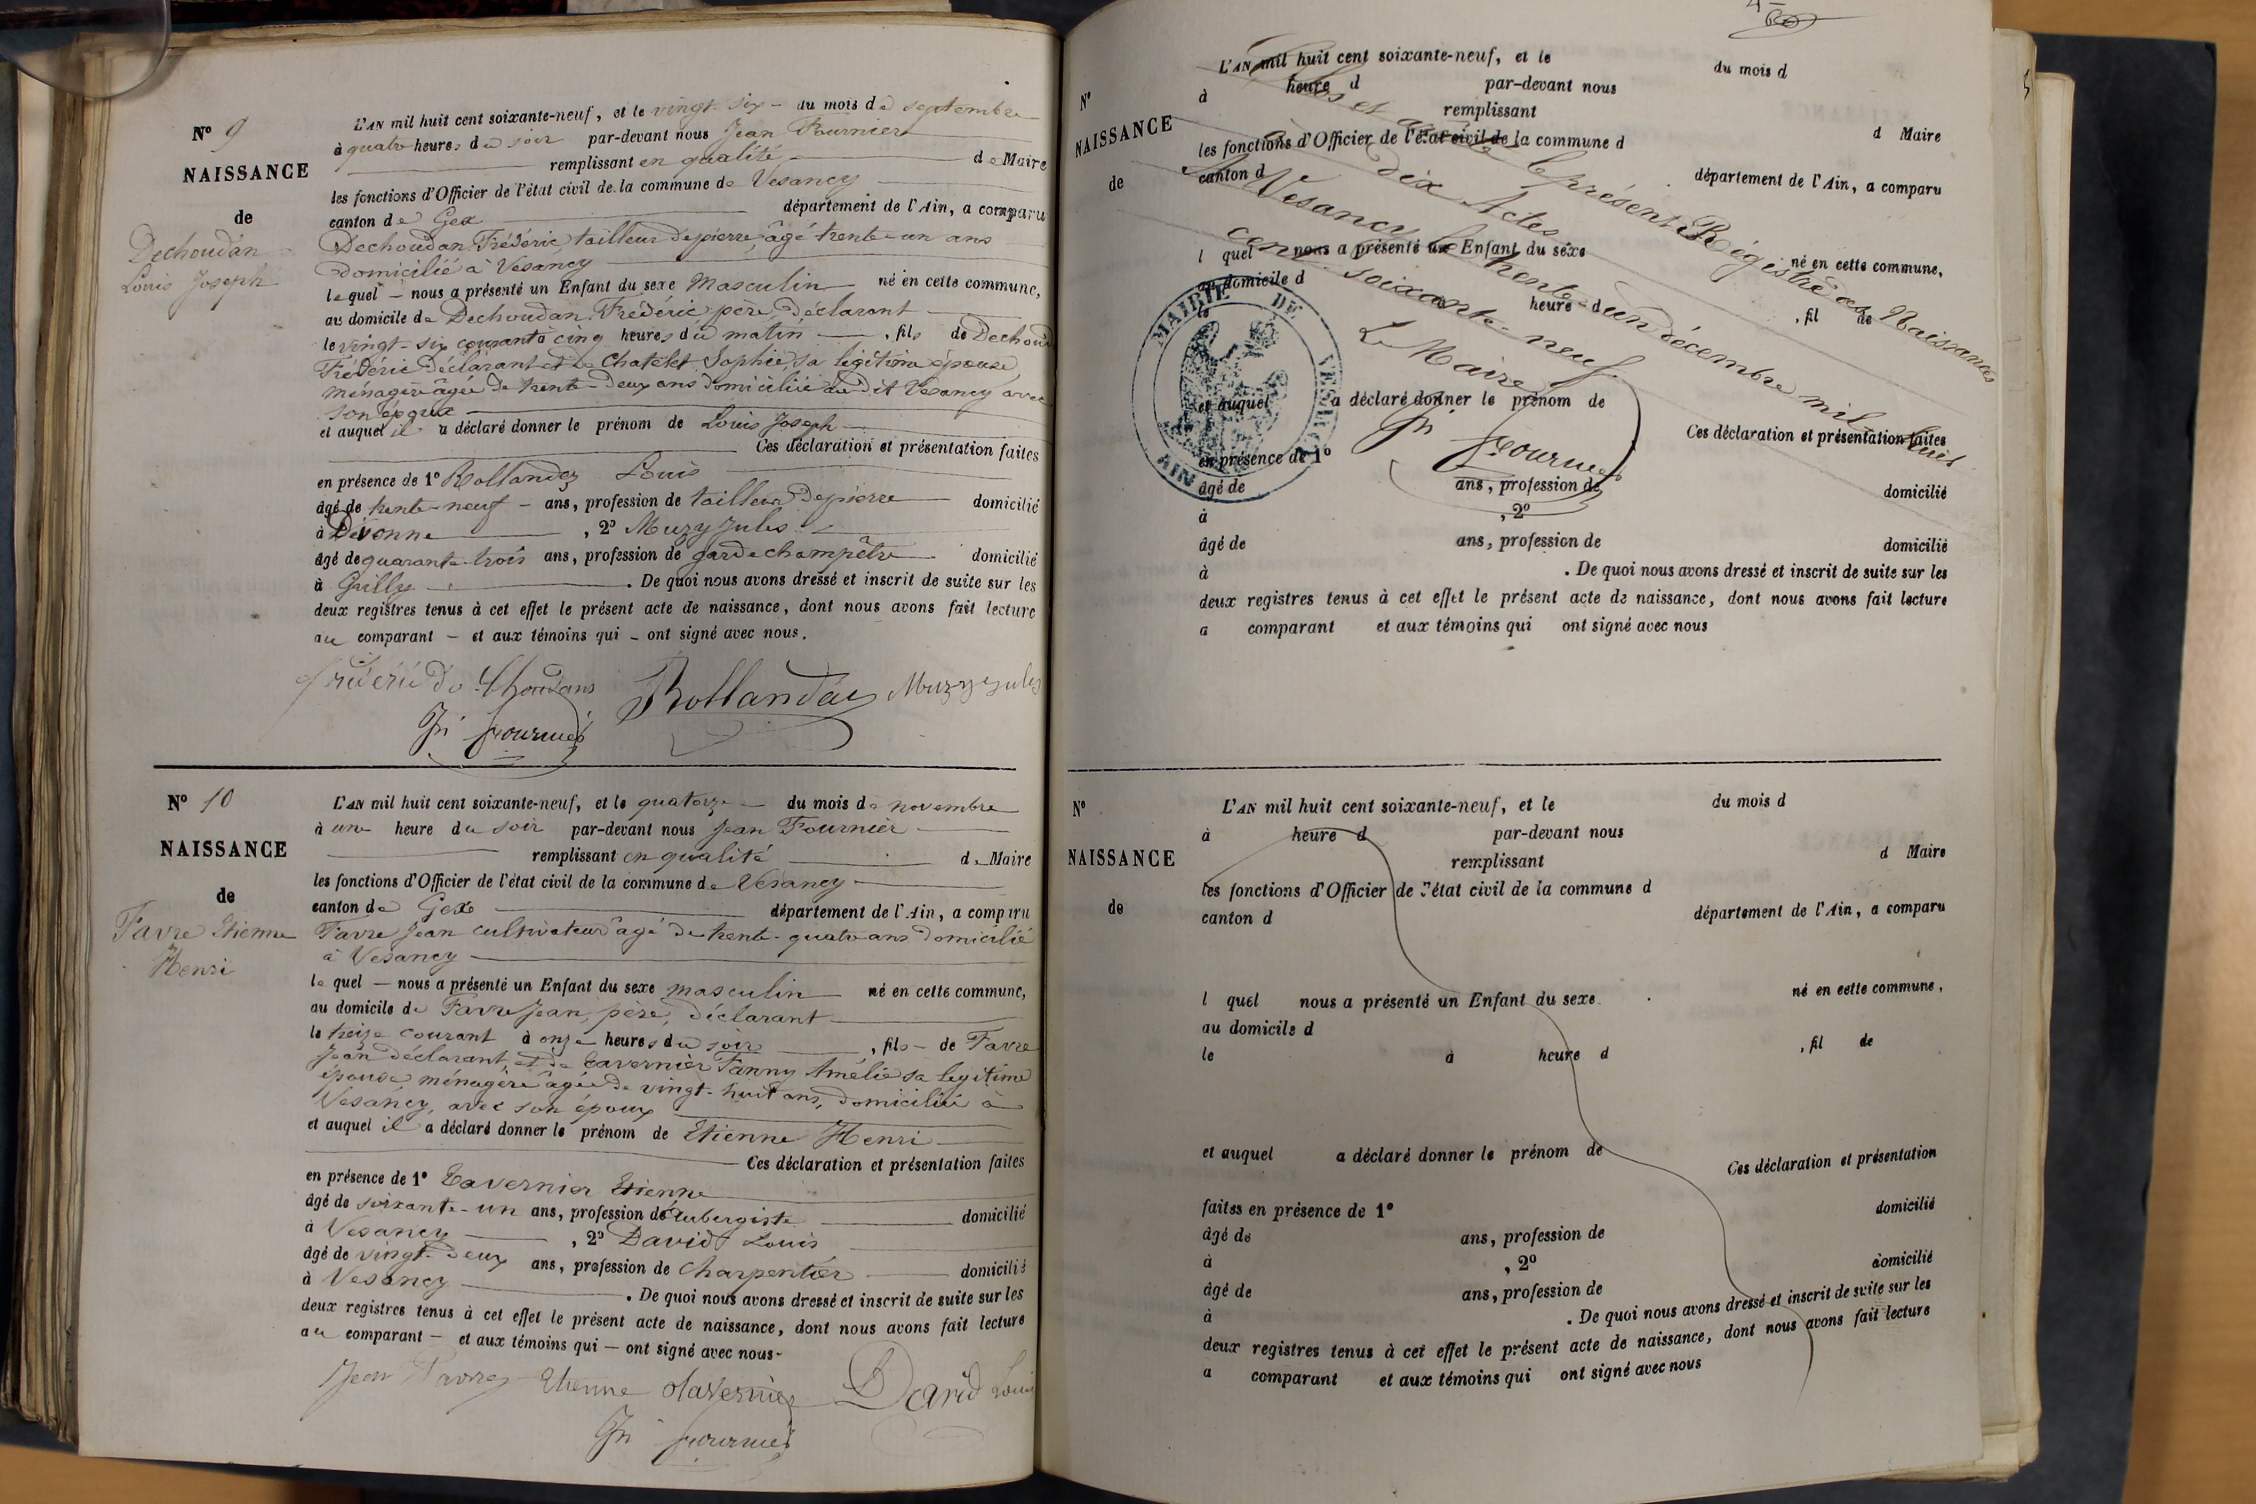 N° 9
NAISSANCE
de
Dechoudan
Louis Joseph
L'AN mil huit cent soixante-neuf, et le vingt-six - du mois de septembre
à quatre heures du soir par-devant nous Jean Fournier
remplissant en qualité de Maire
les fonctions d'Officier de l'état civil de la commune de Vesancy
canton de Gex département de l'Ain, a comparu
Dechoudan Frédéric tailleur de pierre, âgé trente-un ans
domicilié à Vesancy
lequel - nous a présenté un Enfant du sexe Masculin né en cette commune,
au domicile de Dechoudan Frédéric père, déclarant
le vingt-six courant à cinq heures du matin , fils de Dechoud
Frédéric déclarant et de Chatelet Sophie, sa légitime épouse,
ménagère âgée de trente-deux ans domiciliée au dit Vesancy avec
son époux
et auquel il a déclaré donner le prénom de Louis Joseph
Ces déclaration et présentation faites
en présence de 1° Rollandez Louis
âgé de trente-neuf - ans, profession de tailleur de pierre domicilié
à Divonne , 2° Muzy Jules
âgé de quarante-trois ans, profession de garde champêtre domicilié
à Grilly . De quoi nous avons dressé et inscrit de suite sur les
deux registres tenus à cet effet le présent acte de naissance, dont nous avons fait lecture
au comparant - et aux témoins qui - ont signé avec nous.
Rollandez Muzy Jules
Jn Fournier
N° 10
NAISSANCE
de
Favre Etienne
Henri
L'AN mil huit cent soixante-neuf, et le quatorze - du mois de novembre
à une heure du soir par-devant nous Jean Fournier
remplissant en qualité de Maire
les fonctions d'Officier de l'état civil de la commune de Vesancy
canton de Gex département de l'Ain, a comparu
Favre Jean cultivateur âgé de trente-quatre ans domicilié
à Vesancy
lequel - nous a présenté un Enfant du sexe masculin né en cette commune,
au domicile de Favre Jean, père, déclarant
le treize courant à onze heures du soir , fils - de Favre
Jean déclarant, et de Tavernier Fanny Amélie sa légitime
épouse, ménagère âgée de vingt-huit ans, domiciliée à
Vesancy, avec son époux
et auquel il a déclaré donner le prénom de Etienne Henri
Ces déclaration et présentation faites
en présence de 1° Tavernier Etienne
âgé de soixante-un ans, profession de Aubergiste domicilié
à Vesancy , 2° David Louis
âgé de vingt-deux ans, profession de Charpentier domicilié
à Vesancy . De quoi nous avons dressé et inscrit de suite sur les
deux registres tenus à cet effet le présent acte de naissance, dont nous avons fait lecture
au comparant - et aux témoins qui - ont signé avec nous-
Jean Favre Etienne Tavernier David Louis
Jn Fournier
N°
NAISSANCE
de
L'AN mil huit cent soixante-neuf, et le du mois d
à heure d par-devant nous
remplissant d Maire
les fonctions d'Officier de l'état civil de la commune d
canton d département de l'Ain, a comparu
l quel nous a présenté un Enfant du sexe né en cette commune,
au domicile d
le à heure d , fil de
et auquel a déclaré donner le prénom de
Ces déclaration et présentation faites
en présence de 1°
âgé de ans, profession de domicilié
à , 2°
âgé de ans, profession de domicilié
à . De quoi nous avons dressé et inscrit de suite sur les
deux registres tenus à cet effet le présent acte de naissance, dont nous avons fait lecture
a comparant et aux témoins qui ont signé avec nous
Clos et arrêté le présent Régistre des Naissances
à dix Actes
à Vesancy le trente-un décembre mil huit
cent soixante-neuf
Le Maire
Jn Fournier
MAIRIE DE VESANCY
AIN
N°
NAISSANCE
de
L'AN mil huit cent soixante-neuf, et le du mois d
à heure d par-devant nous
remplissant d Maire
les fonctions d'Officier de l'état civil de la commune d
canton d département de l'Ain, a comparu
l quel nous a présenté un Enfant du sexe né en cette commune,
au domicile d
le à heure d , fil de
et auquel a déclaré donner le prénom de
Ces déclaration et présentation
faites en présence de 1° domicilié
âgé de ans, profession de
à , 2° domicilié
âgé de ans, profession de
à . De quoi nous avons dressé et inscrit de suite sur les
deux registres tenus à cet effet le présent acte de naissance, dont nous avons fait lecture
a comparant et aux témoins qui ont signé avec nous